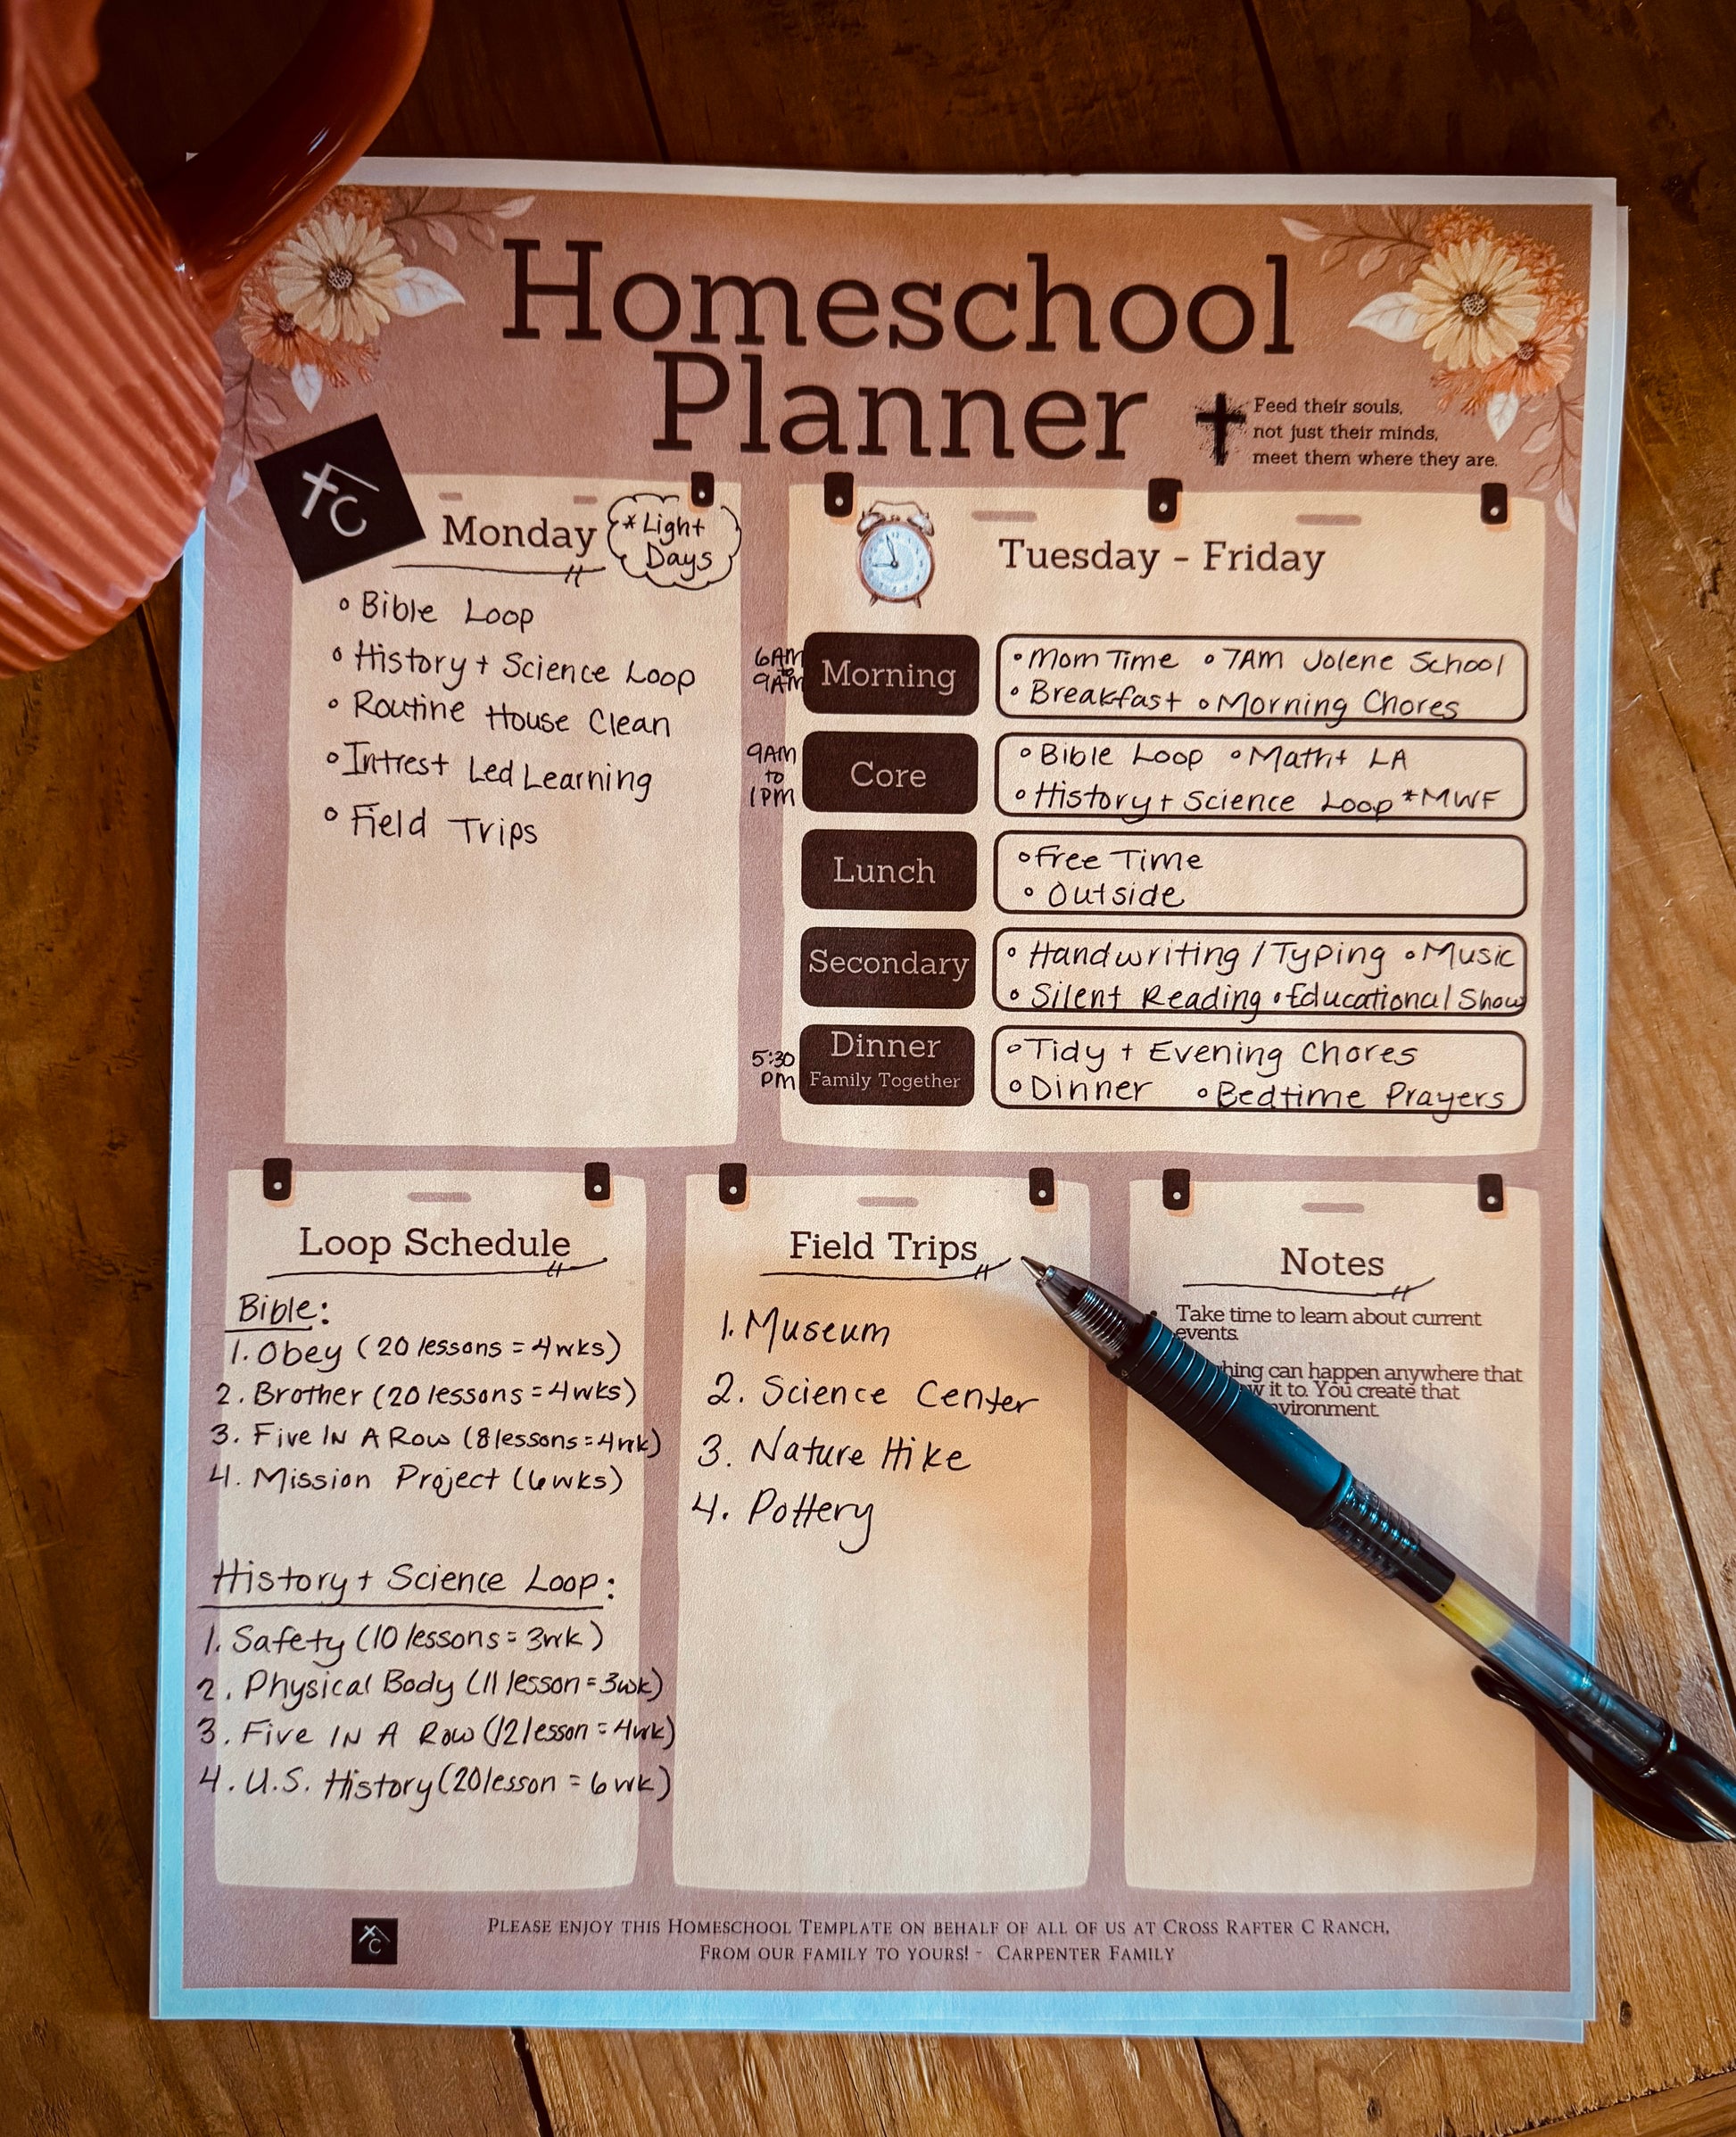 Homeschool
Planner
Feed their souls,
not just their minds,
meet them where they are.
C
Monday
*Light
Days
• Bible Loop
• History + Science Loop
• Routine House Clean
• Intrest Led Learning
• Field Trips
Tuesday - Friday
6AM
to
9AM
Morning
• Mom Time • 7AM Jolene School
• Breakfast • Morning Chores
9AM
to
1PM
Core
• Bible Loop • Math + LA
• History + Science Loop *MWF
Lunch
• Free Time
• Outside
Secondary
• Handwriting / Typing • Music
• Silent Reading • Educational Show
5:30
PM
Dinner
Family Together
• Tidy + Evening Chores
• Dinner • Bedtime Prayers
Loop Schedule
Bible:
1. Obey (20 lessons = 4wks)
2. Brother (20 lessons = 4wks)
3. Five IN A Row (8 lessons = 4wk)
4. Mission Project (6wks)
History + Science Loop:
1. Safety (10 lessons = 3wk)
2. Physical Body (11 lesson = 3wk)
3. Five IN A Row (12 lesson = 4wk)
4. U.S. History (20 lesson = 6wk)
Field Trips
1. Museum
2. Science Center
3. Nature Hike
4. Pottery
Notes
• Take time to learn about current
events.
can happen anywhere that
it to. You create that
C
Please enjoy this Homeschool Template on behalf of all of us at Cross Rafter C Ranch,
From our family to yours! - Carpenter Family